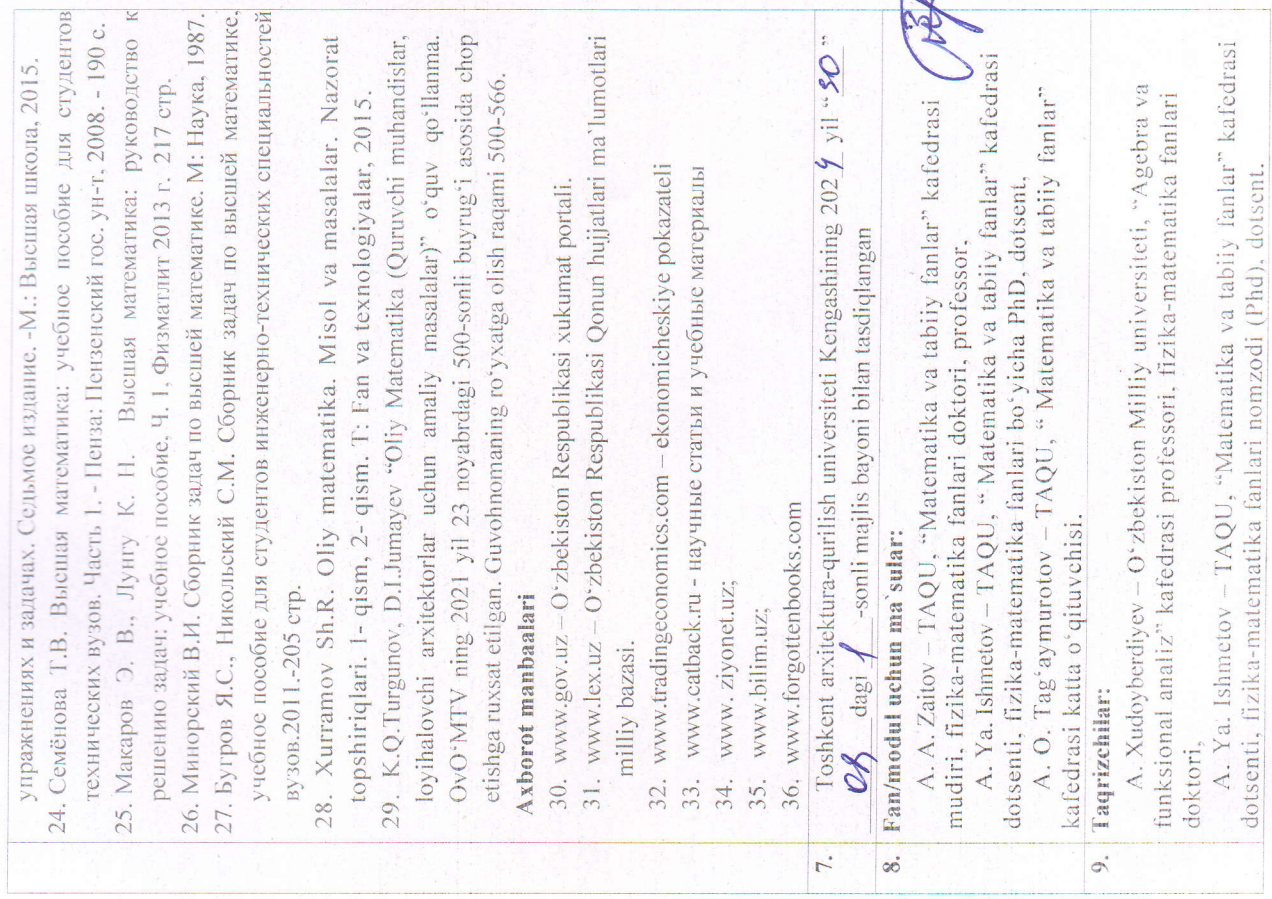 упражнениях и задачах. Седьмое издание. -М.: Высшая школа, 2015.
24. Семёнова Т.В. Высшая математика: учебное пособие для студентов
технических вузов. Часть 1. - Пенза: Пензенский гос. ун-т, 2008. - 190 с.
25. Макаров Э. В., Лунгу К. Н. Высшая математика: руководство к
решению задач: учебное пособие, Ч. 1, Физматлит 2013 г. 217 стр.
26. Минорский В.И. Сборник задач по высшей математике. М: Наука, 1987.
27. Бугров Я.С., Никольский С.М. Сборник задач по высшей математике,
учебное пособие для студентов инженерно-технических специальностей
вузов.2011.-205 стр.
28. Xurramov Sh.R. Oliy matematika. Misol va masalalar. Nazorat
topshiriqlari. 1- qism, 2- qism. T: Fan va texnologiyalar, 2015.
29. K.Q.Turgunov, D.I.Jumayev “Oliy Matematika (Quruvchi muhandislar,
loyihalovchi arxitektorlar uchun amaliy masalalar)” o‘quv qo‘llanma.
OvO‘MTV ning 2021 yil 23 noyabrdagi 500-sonli buyrug‘i asosida chop
etishga ruxsat etilgan. Guvohnomaning ro‘yxatga olish raqami 500-566.
Axborot manbaalari
30. www.gov.uz – O‘zbekiston Respublikasi xukumat portali.
31 www.lex.uz – O‘zbekiston Respublikasi Qonun hujjatlari ma`lumotlari
milliy bazasi.
32. www.tradingeconomics.com – ekonomicheskiye pokazateli
33. www.catback.ru - научные статьи и учебные материалы
34. www. ziyonet.uz;
35. www.bilim.uz;
36. www.forgottenbooks.com
7. Toshkent arxitektura-qurilish universiteti Kengashining 2024 yil “30”
08 dagi 1 -sonli majlis bayoni bilan tasdiqlangan
8. Fan/modul uchun ma`sular:
A. A.Zaitov – TAQU, “Matematika va tabiiy fanlar” kafedrasi
mudiri fizika-matematika fanlari doktori, professor,
A. Ya. Ishmetov – TAQU, “ Matematika va tabiiy fanlar” kafedrasi
dotsenti, fizika-matematika fanlari bo‘yicha PhD, dotsent,
A. O. Tag‘aymurotov – TAQU, “ Matematika va tabiiy fanlar”
kafedrasi katta o‘qituvchisi.
9. Taqrizchilar:
A. Xudoyberdiyev – O‘zbekiston Milliy universiteti, “Agebra va
funksional analiz” kafedrasi professori, fizika-matematika fanlari
doktori,
A. Ya. Ishmetov – TAQU, “Matematika va tabiiy fanlar” kafedrasi
dotsenti, fizika-matematika fanlari nomzodi (Phd), dotsent.